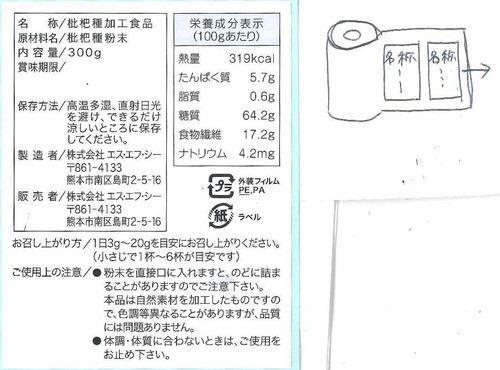 名　　称／枇杷種加工食品
原材料名／枇杷種粉末
内 容 量／300g
賞味期限／
保存方法／高温多湿、直射日光
を避け、できるだけ
涼しいところに保存
してください。
製 造 者／株式会社 エス・エフ・シー
〒861-4133
熊本市南区島町2-5-16
販 売 者／株式会社 エス・エフ・シー
〒861-4133
熊本市南区島町2-5-16
栄養成分表示
(100gあたり)
熱量 319kcal
たんぱく質 5.7g
脂質 0.6g
糖質 64.2g
食物繊維 17.2g
ナトリウム 4.2mg
プラ 外装フィルム
PE,PA
紙 ラベル
お召し上がり方／1日3g～20gを目安にお召し上がりください。
(小さじで1杯～6杯が目安です)
ご使用上の注意／●粉末を直接口に入れますと、のどに詰ま
ることがありますのでご注意下さい。
本品は自然素材を加工したものですの
で、色調等異なることがありますが、品質
には問題ありません。
●体調・体質に合わないときは、ご使用を
お止め下さい。
名称
名称